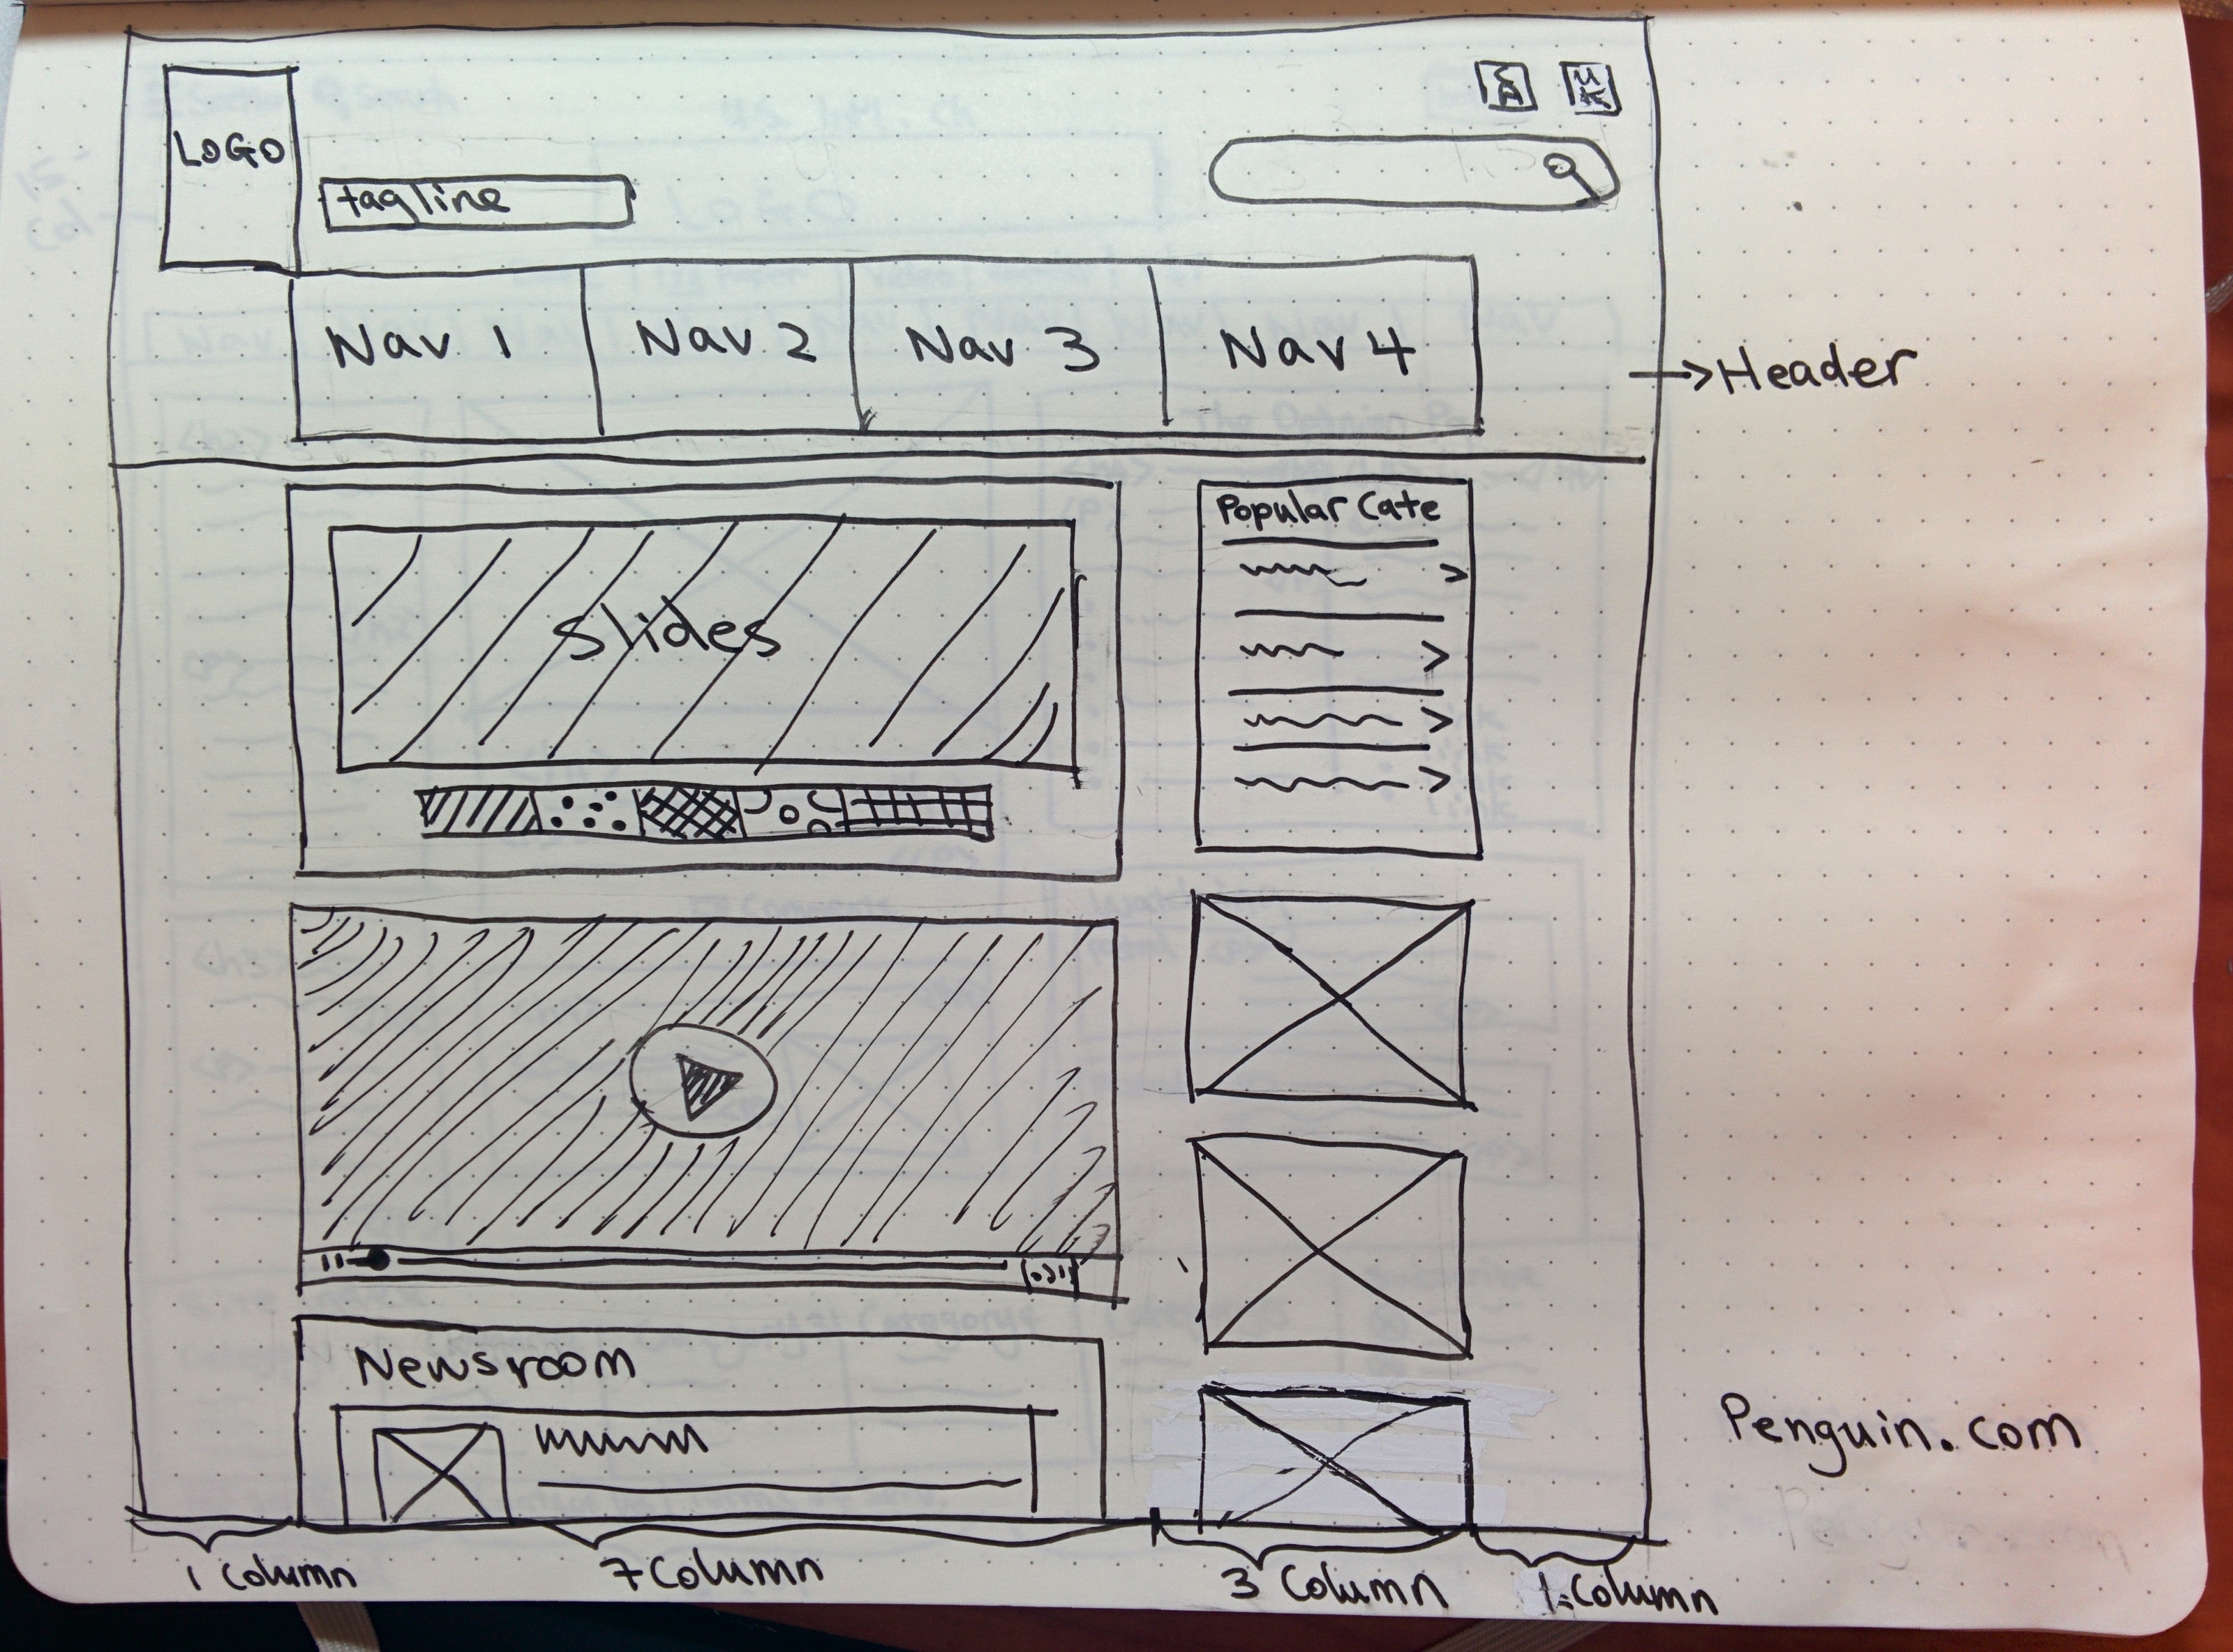 CA
UK
LOGO
tagline
Nav 1
Nav 2
Nav 3
Nav 4
Header
Popular Cate
slides
Newsroom
Penguin.com
1 Column
7 Column
3 Column
1 Column